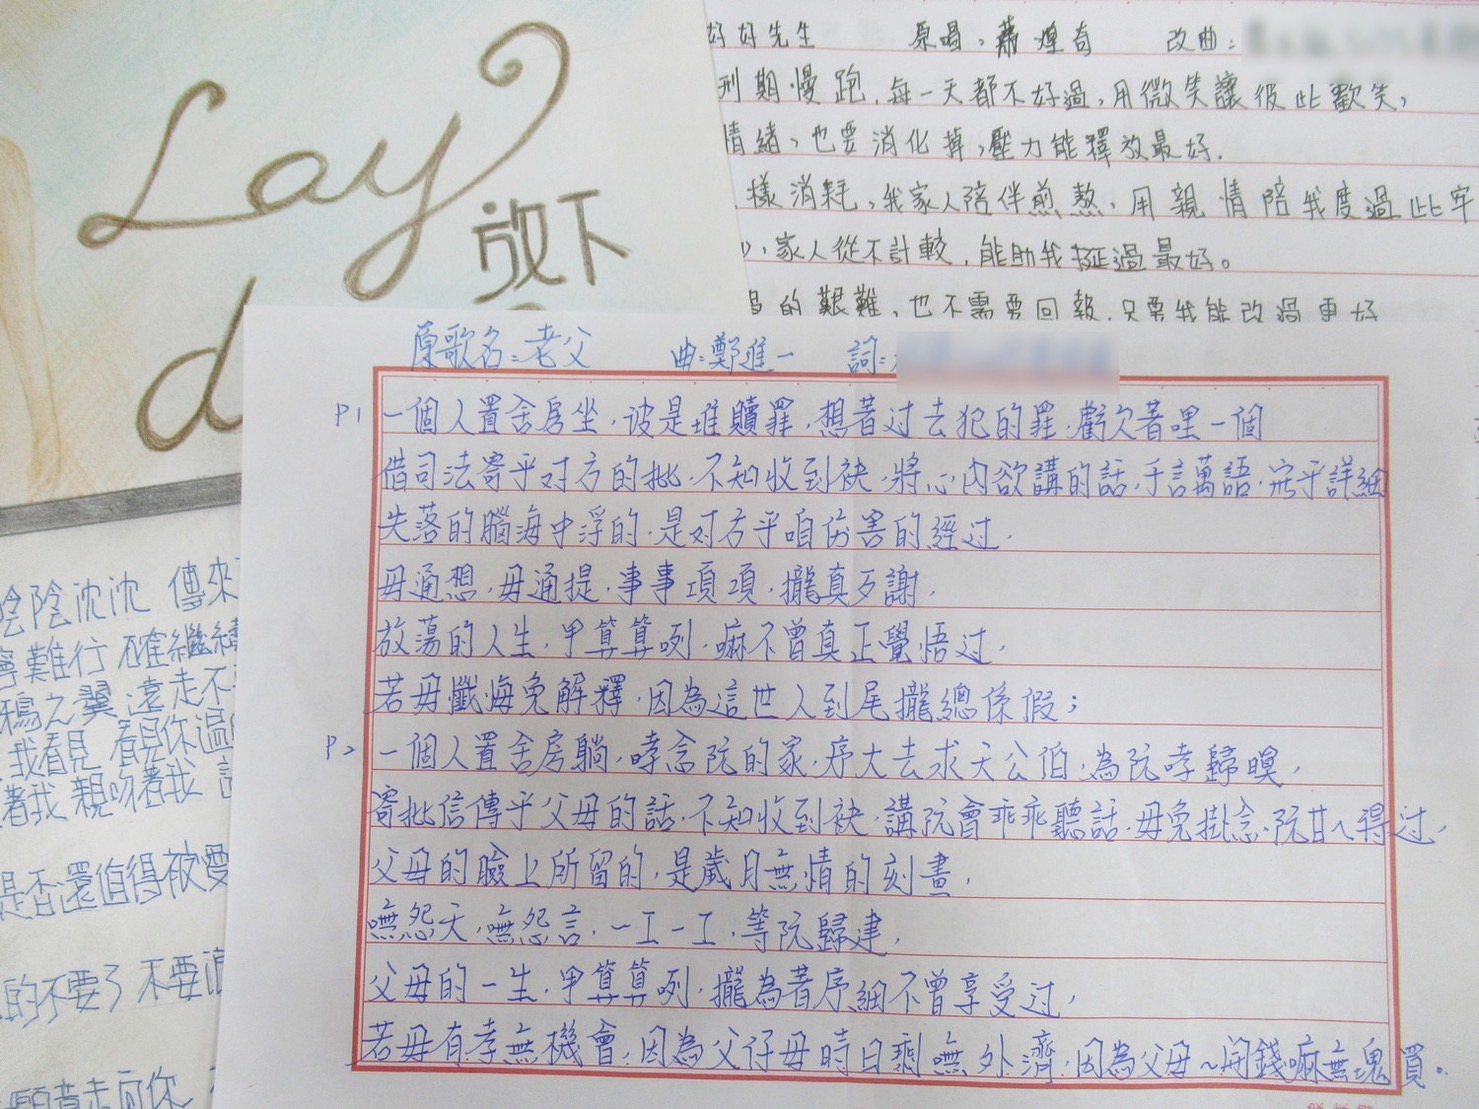 Lay
放下
d
好好先生 原唱：蕭煌奇 改曲：
刑期慢跑，每一天都不好過，用微笑讓彼此歡笑，
情緒，也要消化掉，壓力能釋放最好．
樣消耗，我家人陪伴煎熬，用親情陪我度過此牢
，家人從不計較，能助我挺過最好。
的艱難，也不需要回報，只要我能改過更好
原歌名：老父 曲：鄭進一 詞：
P1 一個人置舍房坐，彼是堆贖罪，想著过去犯的罪，虧欠著哩一個
借司法寄乎对方的批，不知收到袂，將心內欲講的話，千言萬語，完乎詳細
失落的腦海中浮的，是对方乎咱伤害的經过，
毋通想，毋通提，事事項項，攏真歹謝，
放蕩的人生，甲算算咧，嘛不曾真正覺悟过，
若毋懺悔免解釋，因為這世人到尾攏總係假；
P2 一個人置舍房躺，哮念阮的家，序大去求天公伯，為阮哮歸暝，
寄批信傳乎父母的話，不知收到袂，講阮會乖乖聽話，毋免掛念，阮甘ㄟ得过，
父母的臉上所留的，是歲月無情的刻畫，
嘸怨天，嘸怨言，一工一工，等阮歸建，
父母的一生，甲算算咧，攏為著序細不曾享受过，
若毋有孝無機會，因為父仔母時日剩嘸外濟，因為父母～用錢嘛無塊買。
陰陰沈沈 傳來
難行 確繼續
鴉之翼 遠走不
我看見 看見你溫
著我 親吻著我
是否還值得被愛
的不要了 不要
願意走向你